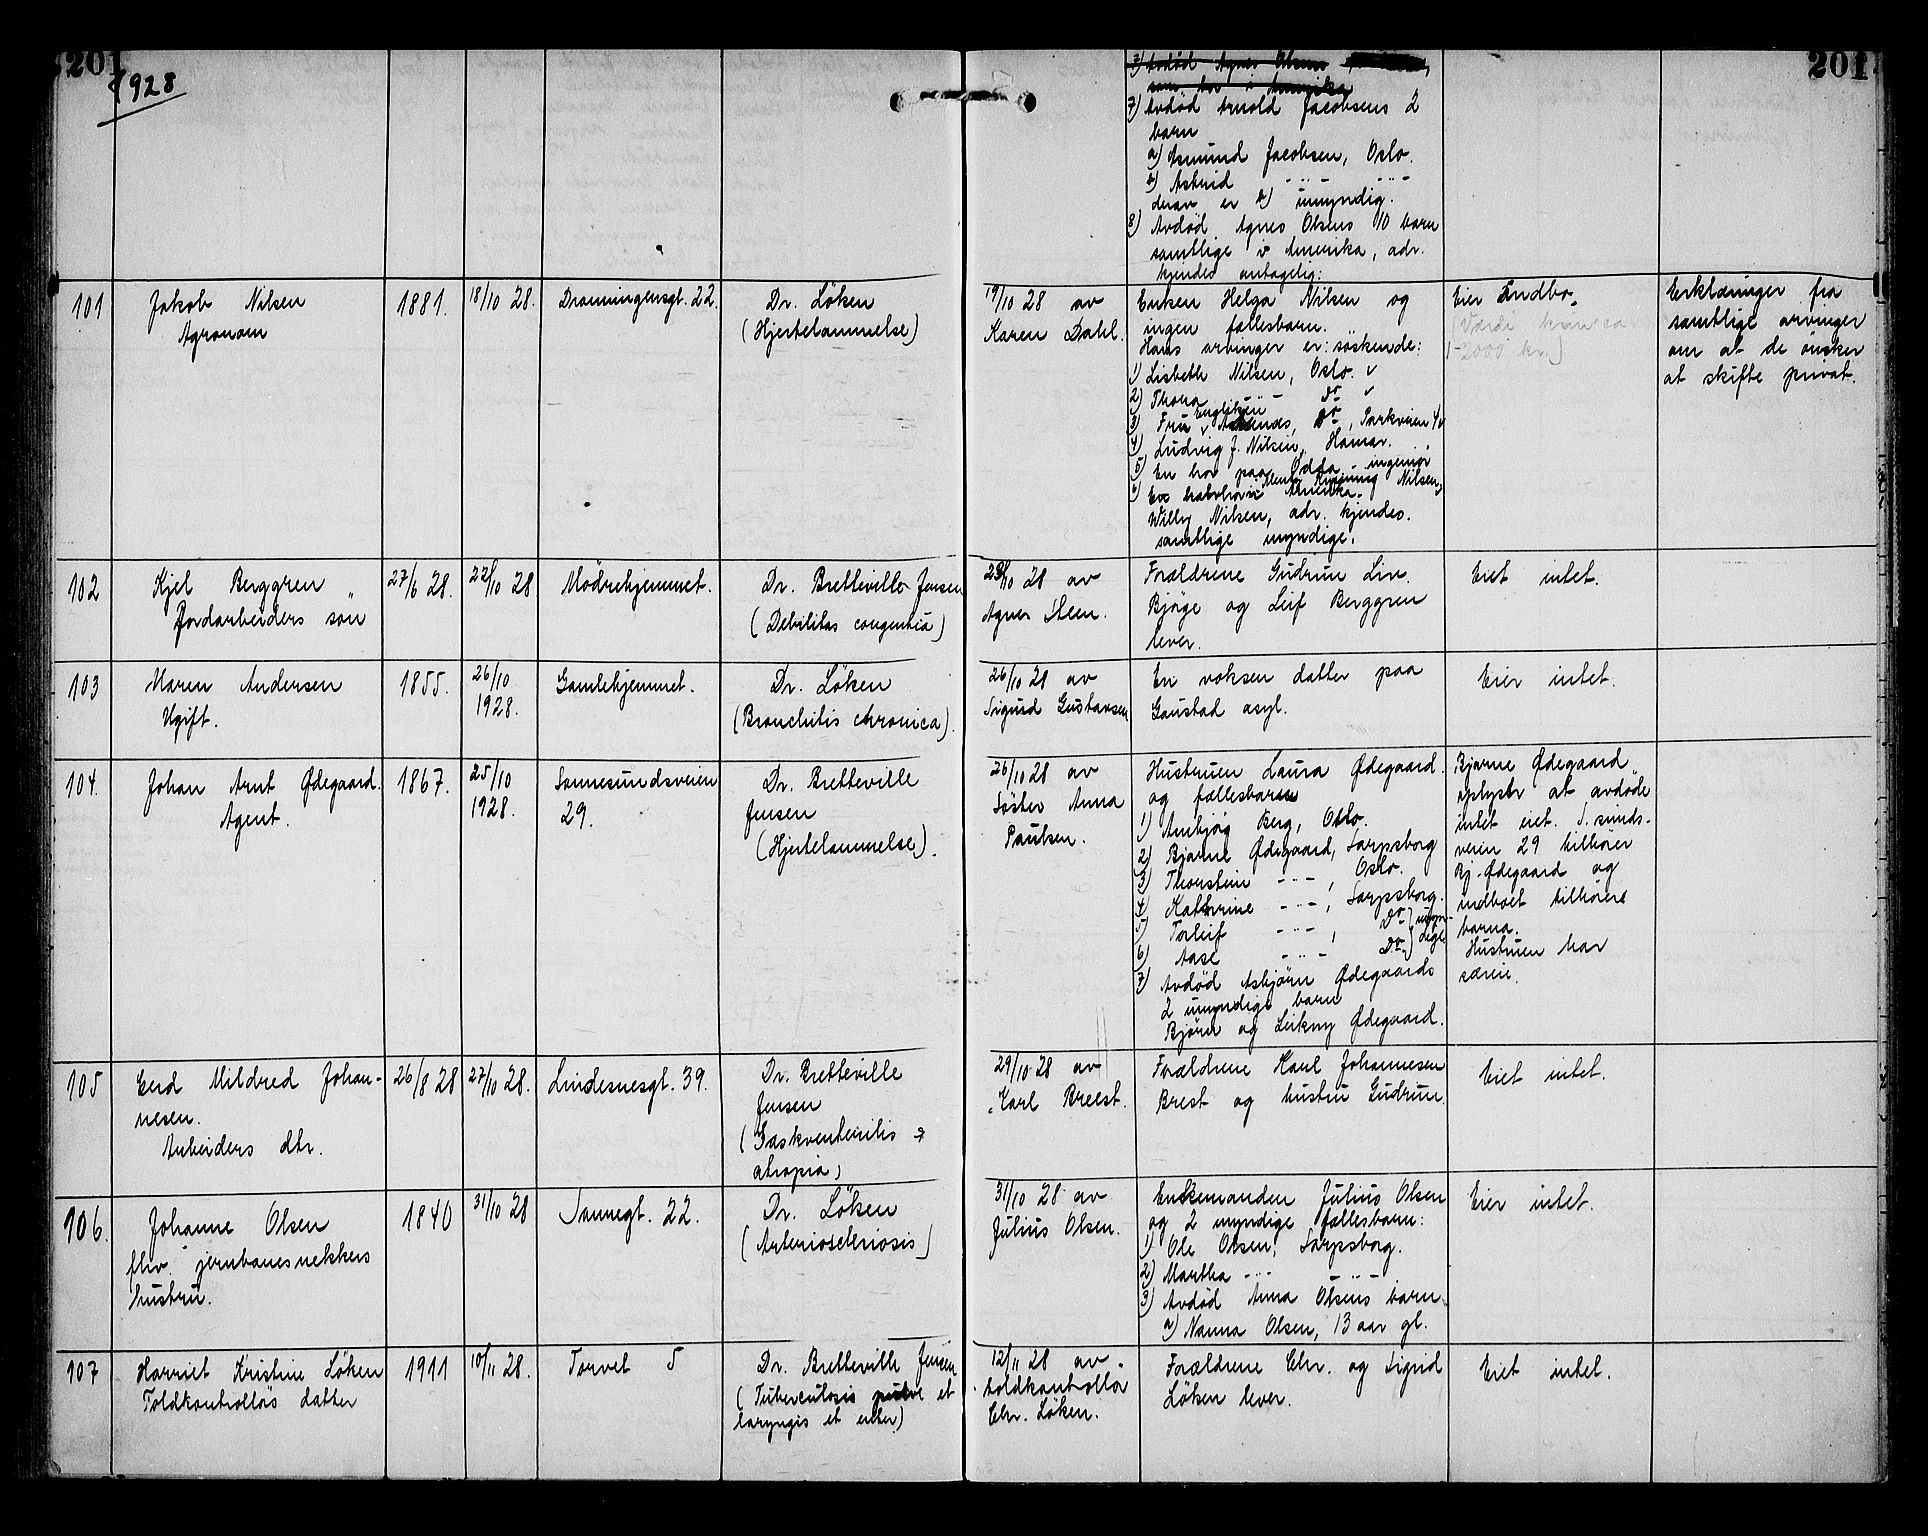 201
1928
201
7) Avdød Agnes Olsens
som bor i Amerika
7) Avdød Arnold Jacobsens 2
barn
a) Asmund Jacobsen, Oslo.
b) Astrid -"- -"-
derav er b) umyndig.
8) Avdød Agnes Olsens 10 barn
samtlige i Amerika, adr.
kjendes antagelig.
101
Jakob Nilsen
Agronom
1881.
18/10 28.
Dronningensgt. 22.
Dr. Löken
(Hjertelammelse)
19/10 28 av
Karen Dahl.
Enken Helga Nilsen og
ingen fællesbarn.
Hans arvinger er: söskende:
1) Lisbeth Nilsen, Oslo. v
2) Thora -"- Do v
3) Fru Amunds, Do, Parkveien 4
4) Ludvig J. Nilsen, Hamar.
5) En bor paa Odda, ingeniør
Nilsen,
6) En halvbror i Amerika.
Willy Nilsen, adr. kjendes.
samtlige myndige.
Eier Indbo.
(Værdi
1-2000 kr.)
Erklæringer fra
samtlige arvinger
om at de önsker
at skifte privat.
102
Kjel Berggren
Jordarbeiders sön
27/6 28.
22/10 28
Mödrehjemmet.
Dr. Bretteville Jensen
(Debilitas congenita)
23/10 28 av
Agnes Steen.
Forældrene Gudrun Liv.
Bjöge og Leif Berggren
lever.
Eiet intet.
103
Maren Andersen
Ugift.
1855.
26/10
1928.
Gamlehjemmet.
Dr. Löken
(Bronchitis chronica).
26/10 28 av
Sigurd Gustavsen
En voksen datter paa
Gaustad asyl.
Eier intet.
104.
Johan Arnt Ødegaard.
Agent.
1867.
25/10
1928.
Sannesundsveien
29.
Dr. Bretteville
Jensen
(Hjertelammelse).
26/10 28 av
Söster Anna
Paulsen.
Hustruen Laura Ødegaard.
og fællesbarn
1) Anbjørg Berg, Oslo.
2) Bjarne Ødegaard, Sarpsborg
3) Thorstein -"-, Oslo.
4) Kathrine -"-, Sarpsborg.
5) Torleif -"-, Do } umyn-
6) Aase -"- Do } dige
7) Avdød Asbjørn Ødegaards
2 umyndige barn
Bjørn og Leikny Ødegaard.
Bjarne Ødegaard
oplyser at avdøde
intet eiet. S.sunds-
veien 29 tilhører
Bj. Ødegaard og
indboet tilhører
barna.
Hustruen har
særeie.
105
Gerd Mildred Johan-
nesen.
Arbeiders dtr.
26/8 28
27/10 28.
Lindesnesgt. 39.
Dr. Bretteville
Jensen
(Gaskventeritis →
atropia)
29/10 28 av
Karl Breest.
Forældrene Karl Johannesen
Brest og hustru Gudrun.
Eiet intet.
106.
Johanne Olsen
fhv. jernbanesnekkers
hustru.
1840
31/10 28
Sannegt. 22.
Dr. Löken
(Arteriosclerosis)
31/10 28 av
Julius Olsen.
Enkemanden Julius Olsen
og 2 myndige fællesbarn:
1) Ole Olsen, Sarpsborg.
2) Martha -"- -"-
3) Avdød Anna Olsens barn
a) Nanna Olsen, 13 aar gl.
Eier intet.
107
Harriet Kristine Löken
Toldkontrollös datter
1911
10/11 28.
Torvet 5
Dr. Bretteville Jensen
(Tuberculosis pulm et
laryngis et enter)
12/11 28 av
toldkontrollör
Chr. Löken.
Forældrene Chr. og Sigrid
Löken lever.
Eiet intet.